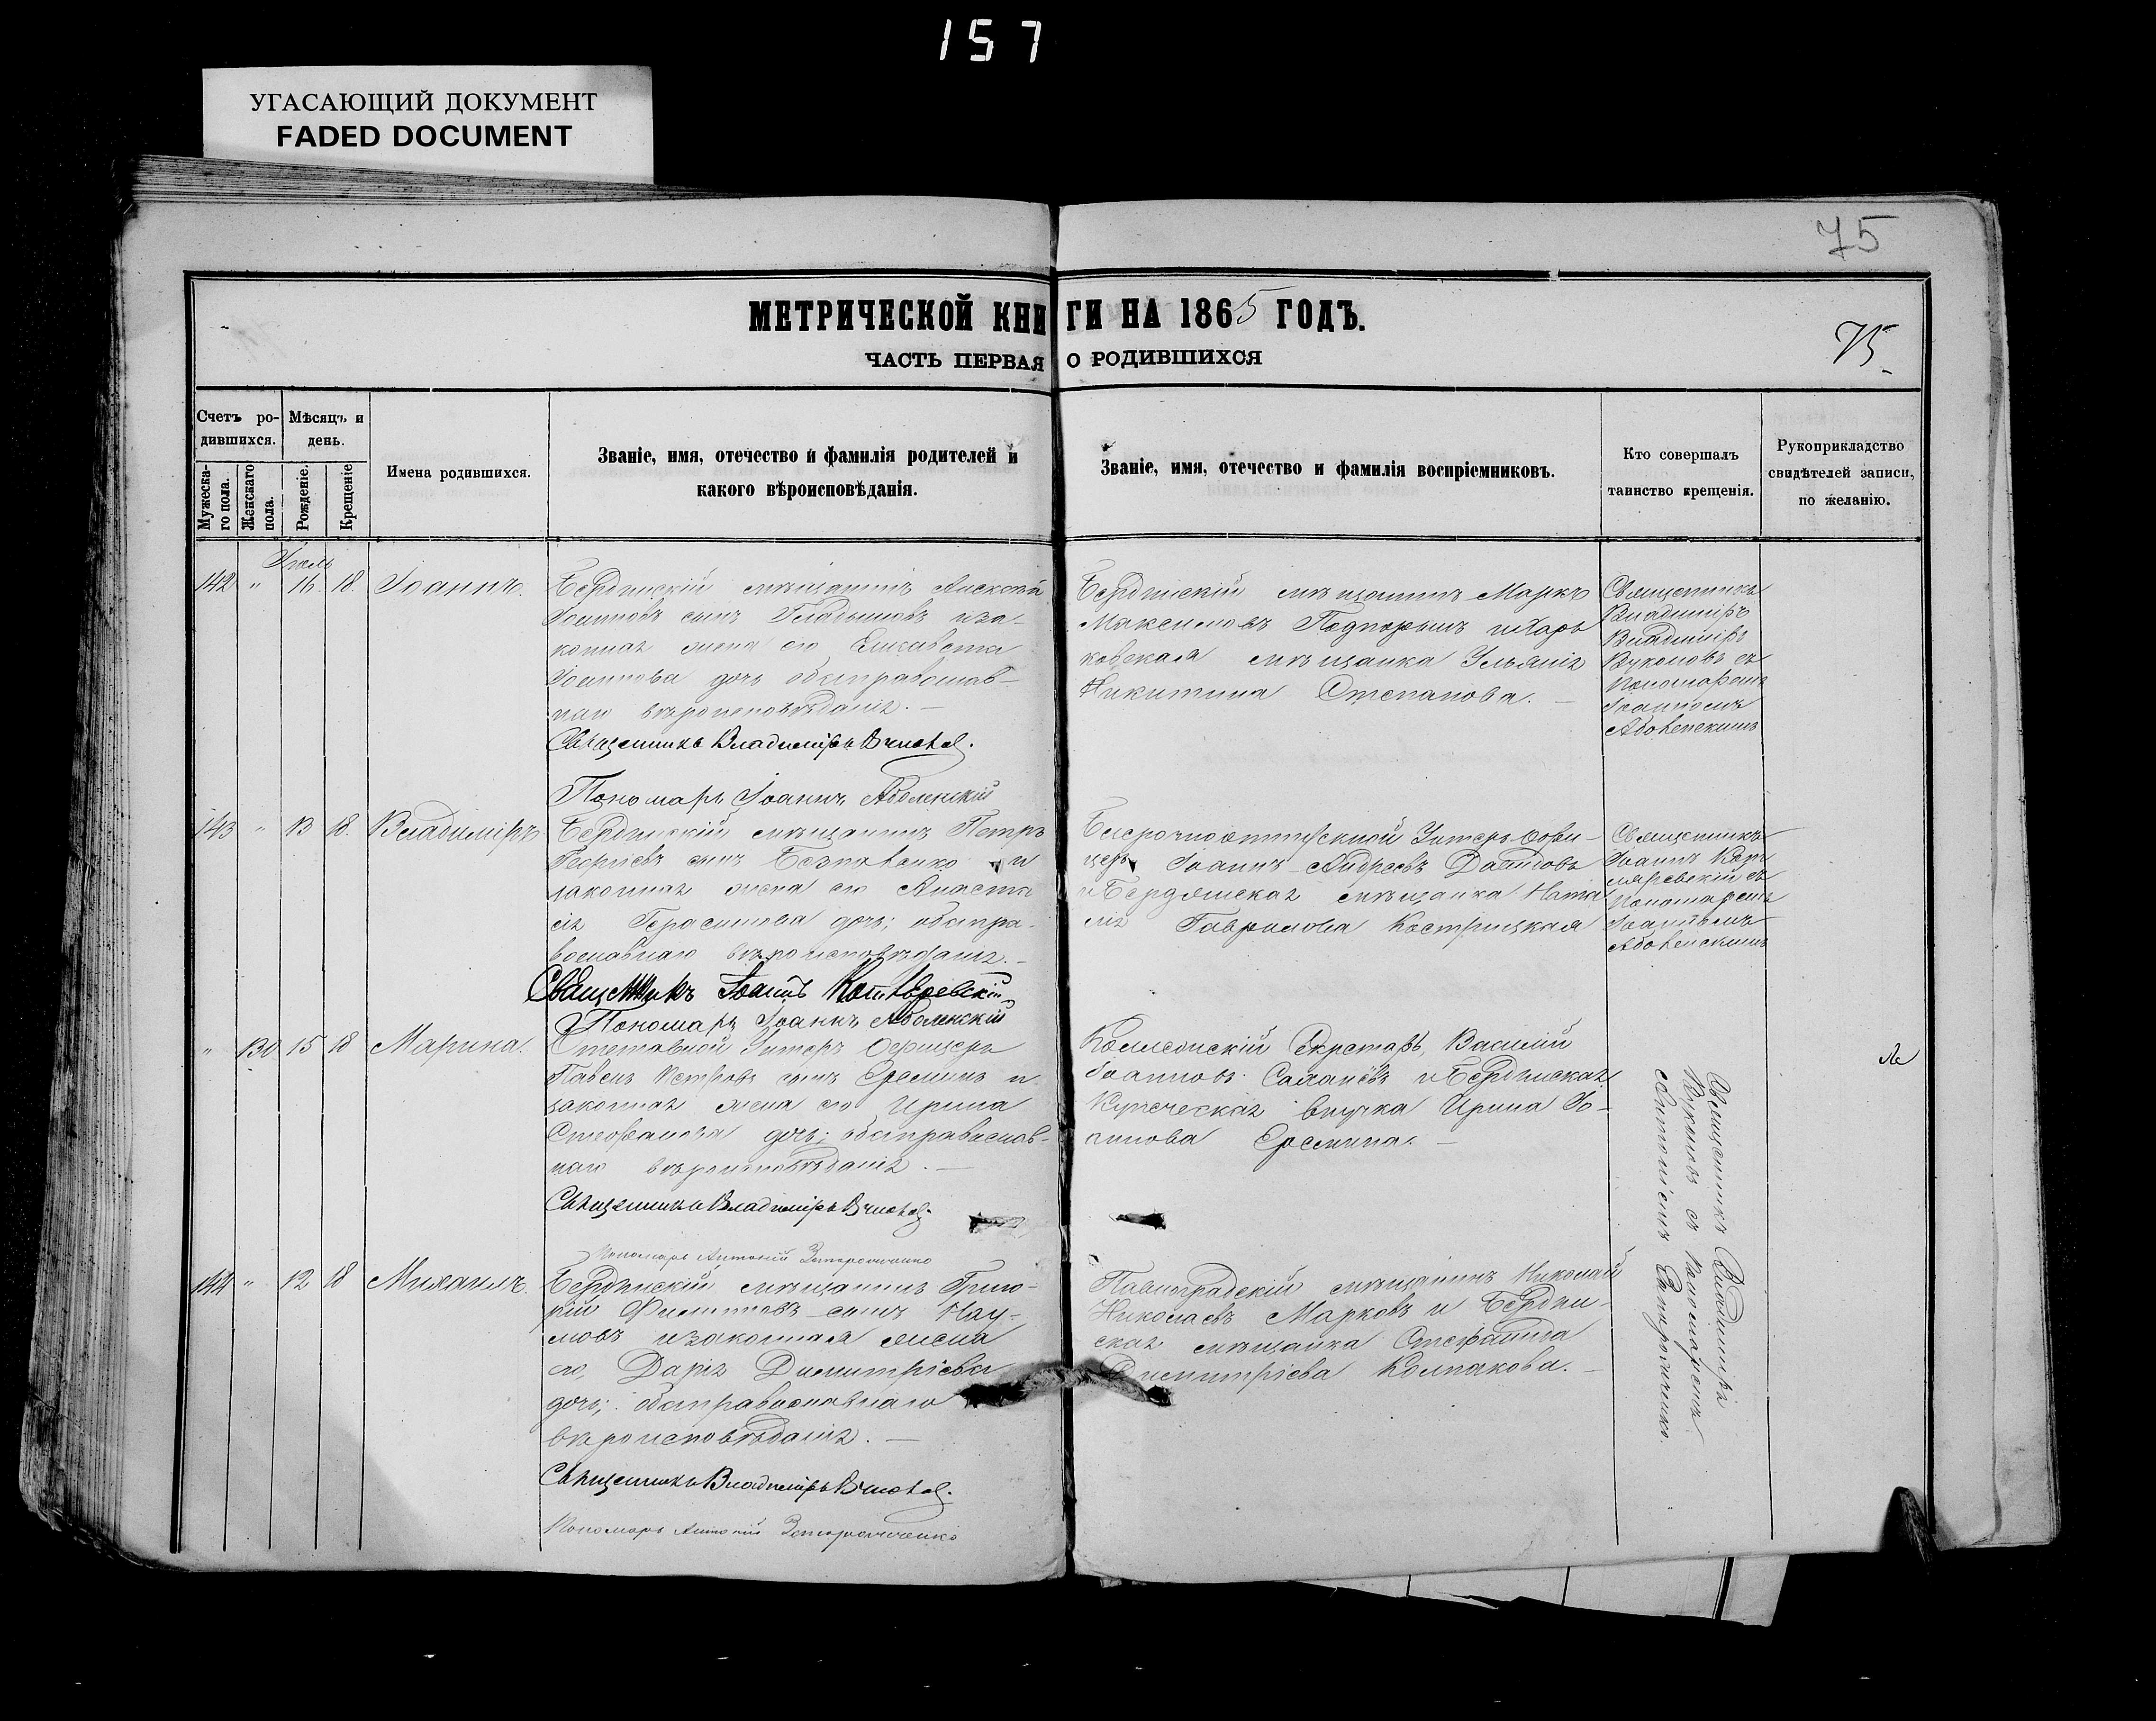 157
УГАСАЮЩИЙ ДОКУМЕНТ
FADED DOCUMENT
75
МЕТРИЧЕСКОЙ КНИГИ НА 1865 ГОДЪ.
ЧАСТЬ ПЕРВАЯ О РОДИВШИХСЯ
75.
Счетъ ро-
дившихся.
Мужеска-
го пола.
Женскаго
пола.
Мѣсяцъ и
день.
Рожденіе.
Крещеніе
Имена родившихся.
Званіе, имя, отечество и фамилія родителей и
какого вѣроисповѣданія.
Званіе, имя, отечество и фамилія воспріемниковъ.
Кто совершалъ
таинство крещенія.
Рукоприкладство
свидѣтелей записи,
по желанію.
Іюль
142 " 16. 18. Іоаннъ.
Бердянскій мѣщанинъ
Іоанновъ сынъ и за-
конная жена его Елисавета
Іоаннова дочь оба православ-
наго вѣроисповѣданія. —
Священникъ Владиміръ
Пономарь Іоаннъ Аболенскій
Бердянскій мѣщанинъ Маркъ
Максимовъ и Харь
ковская мѣщанка Ульянія
Никитина Степанова. —
Священникъ
Владиміръ
Владиміръ
съ
Пономаремъ
Іоанномъ
Аболенскимъ
143 " 13 18. Владиміръ
Бердянскій мѣщанинъ Петръ
Георгіевъ сынъ и
законная жена его Анаста
сія Герасимова дочь; оба пра-
вославнаго вѣроисповѣданія. —
Священникъ Іоаннъ Котляревскій
Пономарь Іоаннъ Аболенскій
Безсрочноотпускной Унтеръ-Офи-
церъ Іоаннъ Андреевъ
и Бердянская мѣщанка Ната
лія Гаврилова Кострицкая
Священникъ
Іоаннъ Кот
ляревскій съ
Пономаремъ
Іоанномъ
Аболенскимъ
" 130 15 18 Марина.
Отставной Унтеръ Офицеръ
Павелъ Петровъ сынъ Ереминъ и
законная жена его Ирина
Стефанова дочь; оба православ-
наго вѣроисповѣданія. —
Священникъ Владиміръ
Пономарь Антоній
Коллежскій Секретарь, Василій
Іоанновъ и Бердянская
Купеческая внучка Ирина Іо-
аннова Еремина. —
144 " 12 18 Михаилъ.
Бердянскій мѣщанинъ Григо-
рій Филипповъ сынъ Нау-
мовъ и законная жена
его, Дарія Димитріева
дочь; оба православнаго
вѣроисповѣданія. —
Священникъ Владиміръ
Пономарь Антоній
Павлоградскій мѣщанинъ Николай
Николаевъ Марковъ и Бердян-
ская мѣщанка Стефанида
Димитріева Колпакова. —
Священникъ Владиміръ
съ Пономаремъ